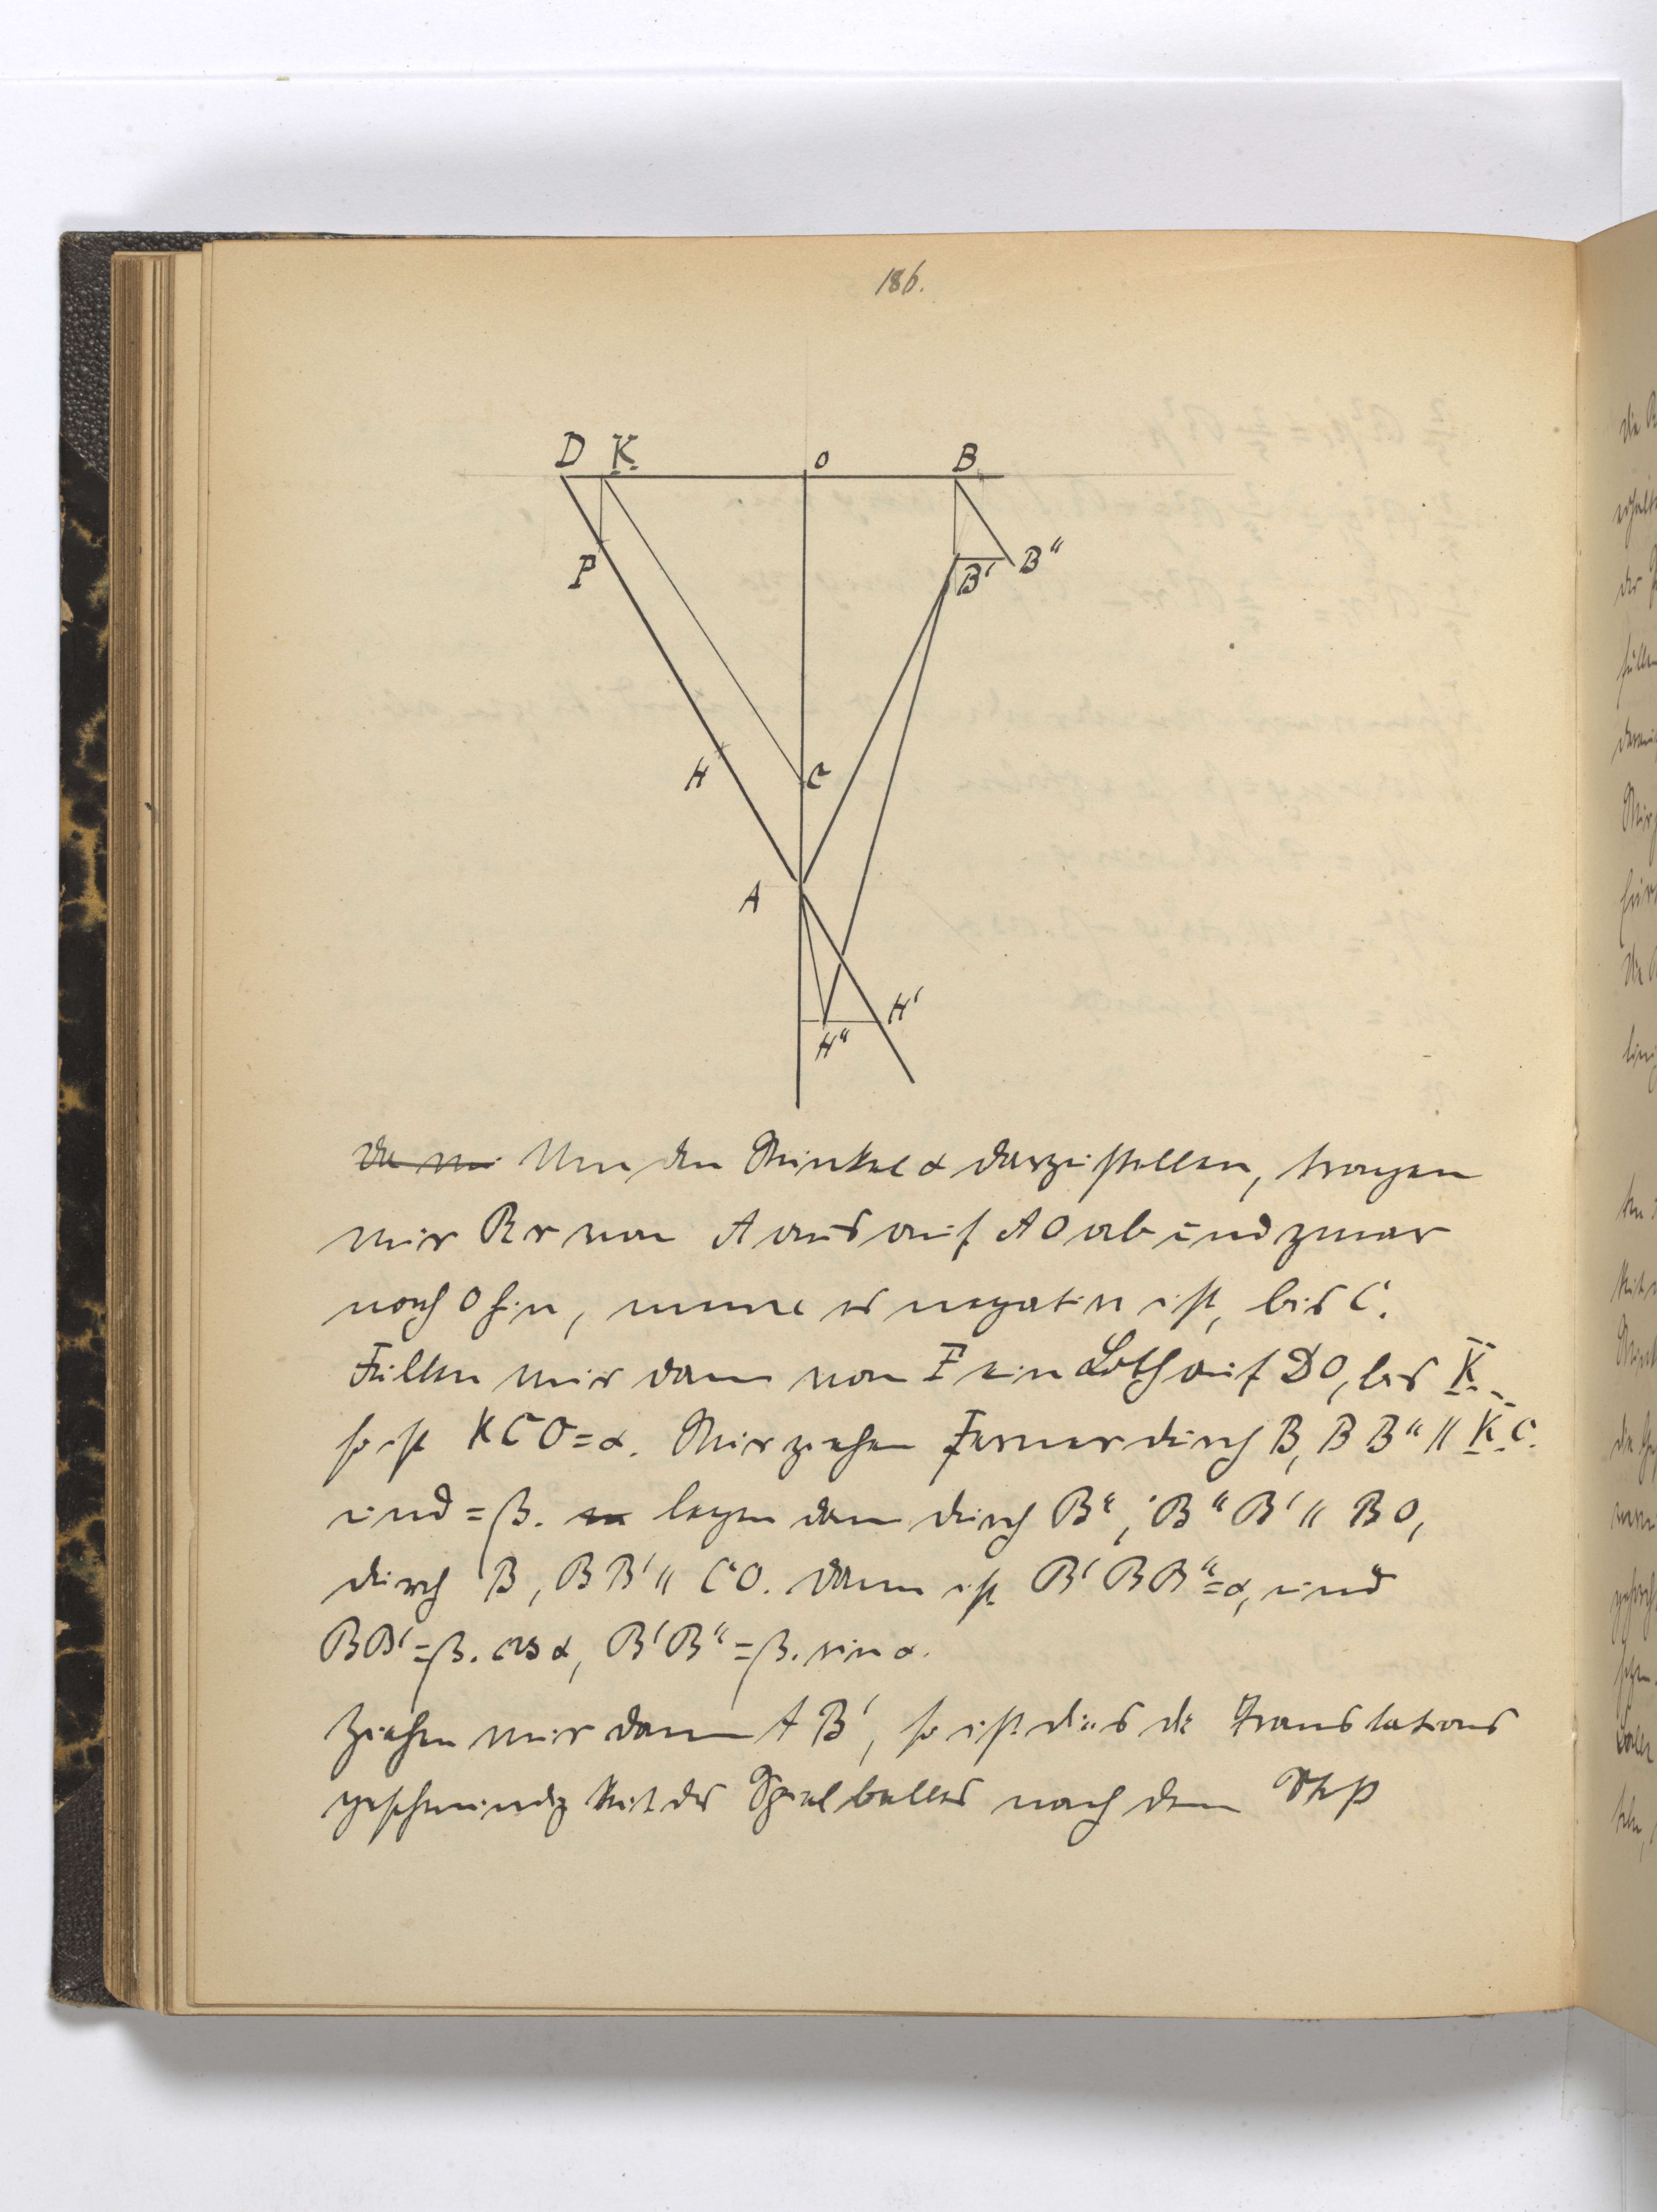 186.
D K O B
P B' B"
H C
A
H'
H"
Um den Winkel α darzustellen, tragen
wir Rr von A aus auf AO ab und zwar
nach O hin, wenn es negativ ist, bis C.
Fällen wir dann von P ein Loth auf DO, bis K
so ist KCO=α. Wir ziehen Ferner durch B, BB" || K C.
und =β. legen dann durch B", B"B' || BO,
durch B, BB' || CO. Dann ist B'BB"=α, und
BB'=β. cos α, B'B"=β. sin α.
Ziehen wir dann AB', so ist dies die Translations
geschwindigkeit des Spielballes nach dem Stoß